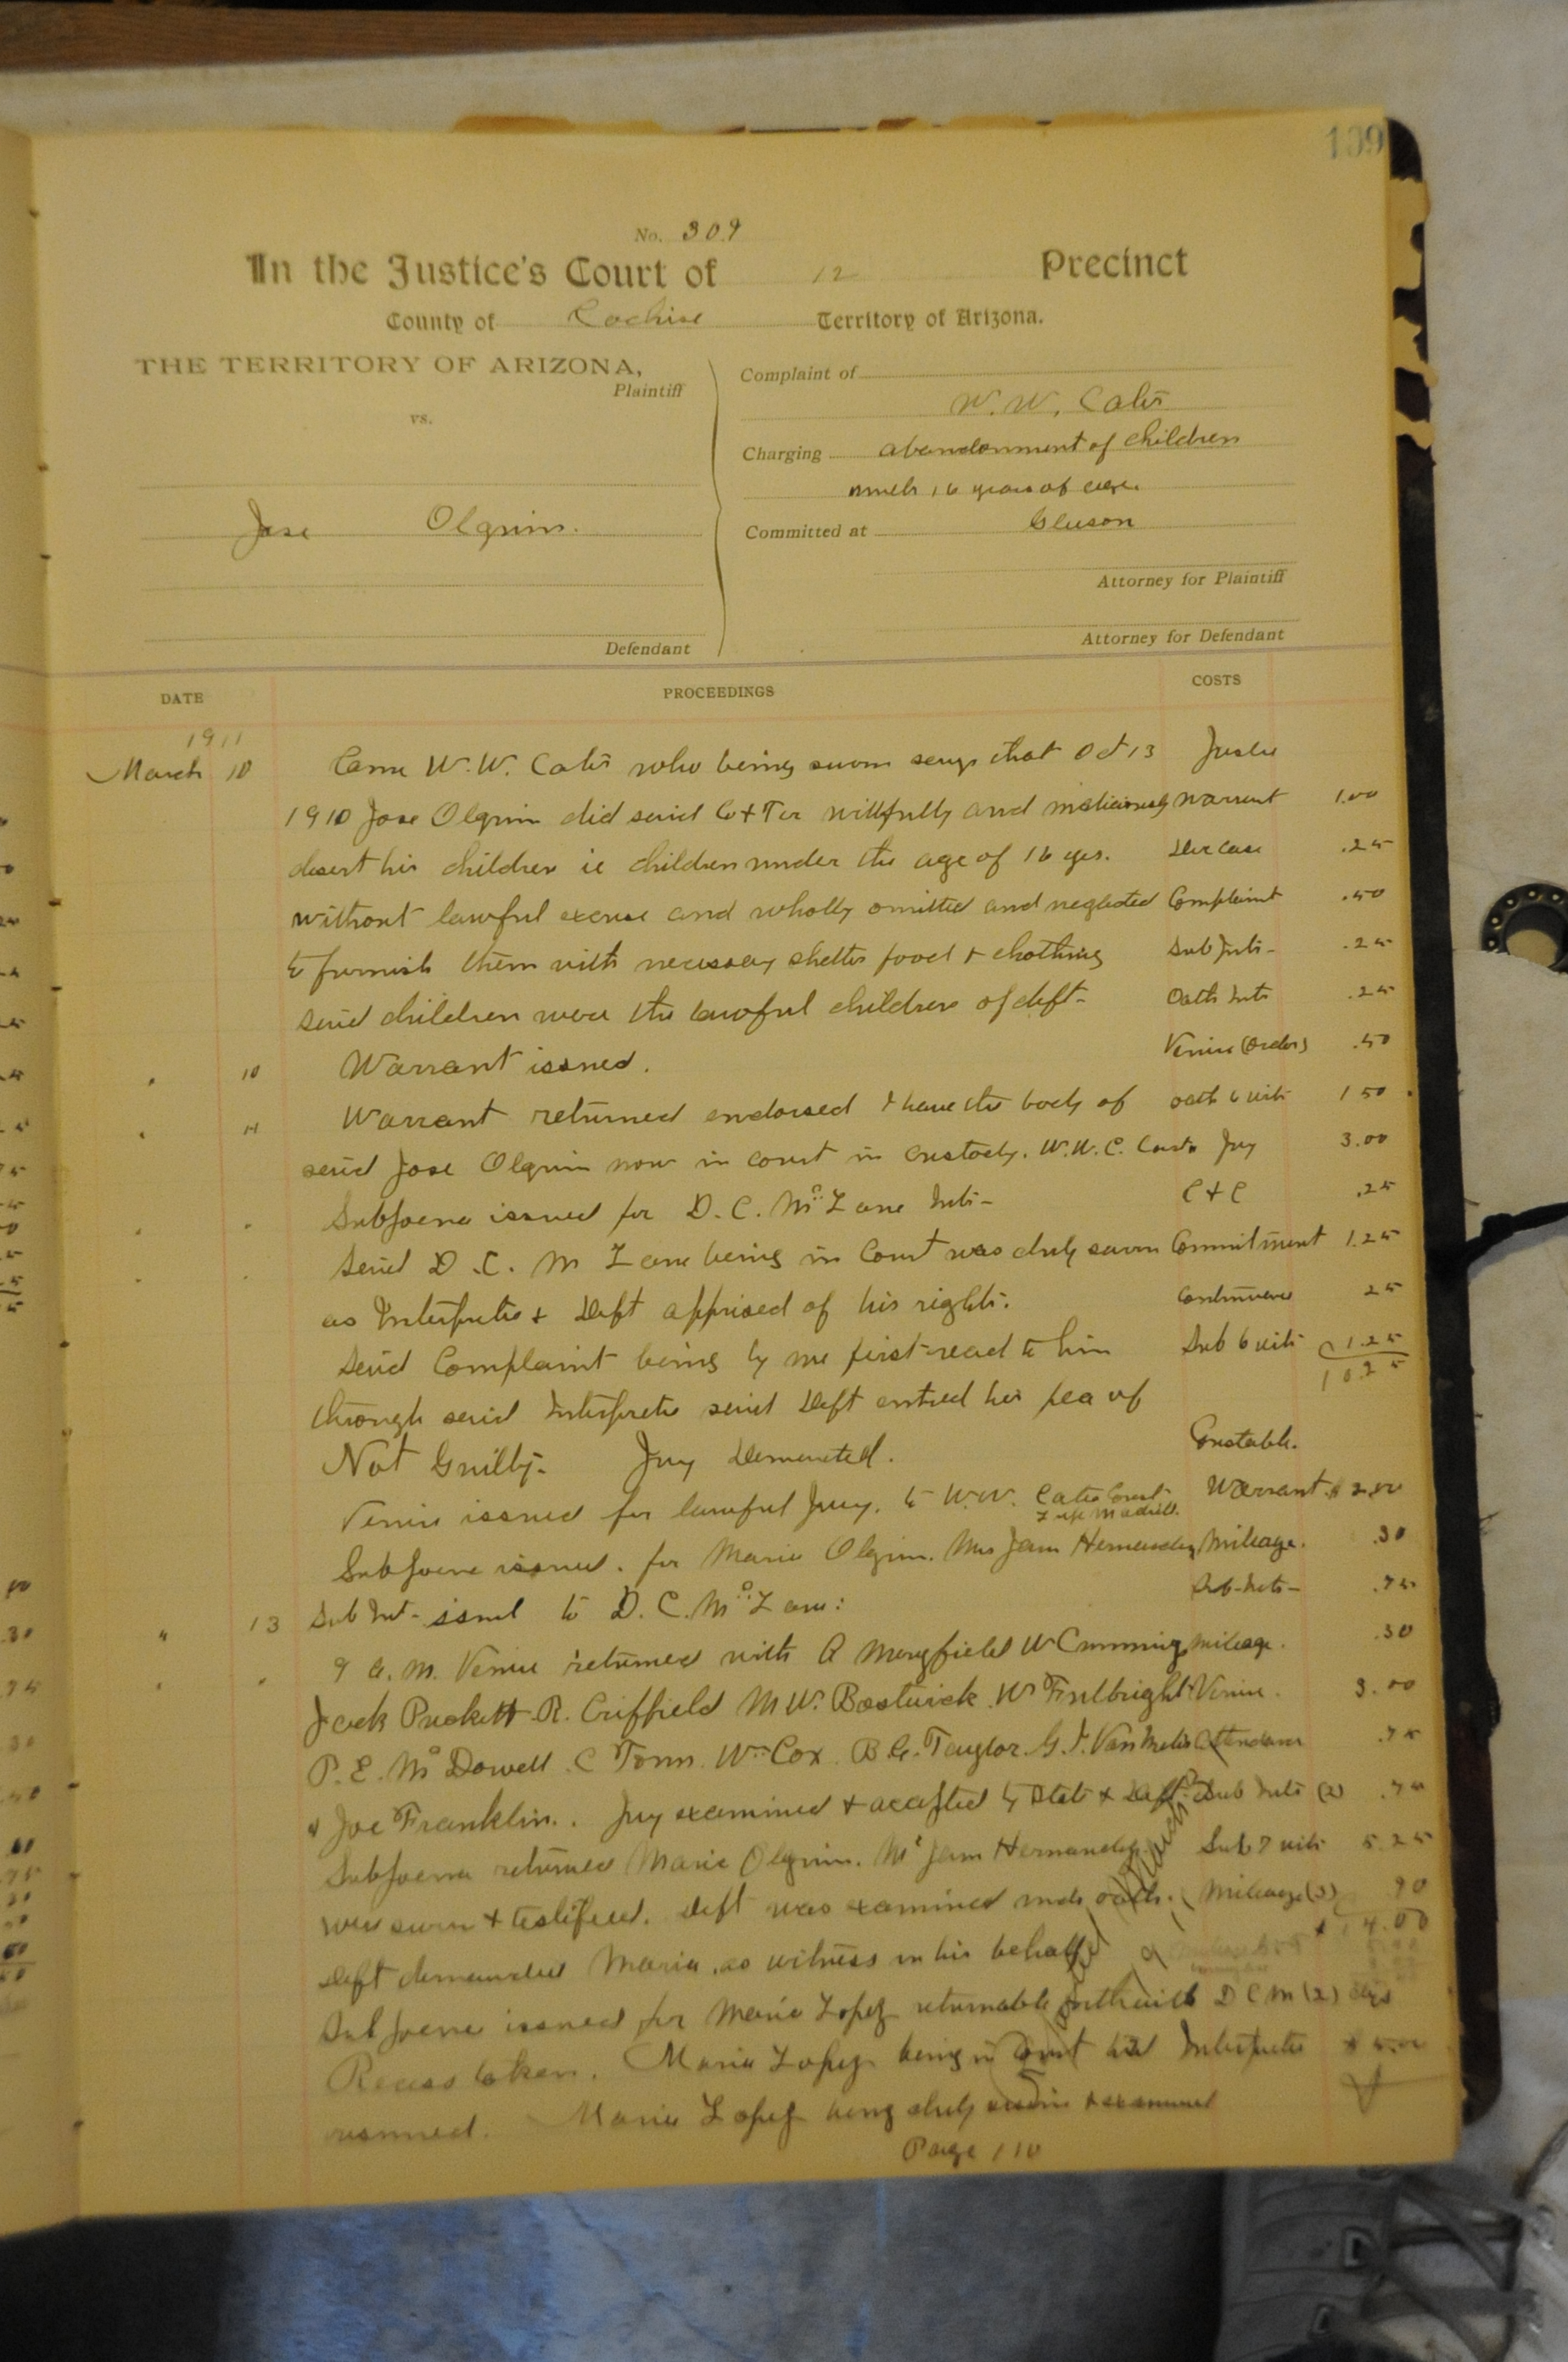 109
No. 309
In the Justice's Court of 12 Precinct
County of Cochise Territory of Arizona.
THE TERRITORY OF ARIZONA,
Plaintiff
vs.
Jose Olguin.
Defendant
Complaint of
W. W. Cates
Charging abandonment of children
under 16 years of age.
Committed at Gleeson
Attorney for Plaintiff
Attorney for Defendant
DATE PROCEEDINGS COSTS
1911
March 10 Came W. W. Cates who being sworn says that Oct 13 Justice
1910 Jose Olguin did said Co & Ter willfully and maliciously Warrant 1.00
desert his children ie children under the age of 16 yrs. Doc case .25
without lawful excuse and wholly omitted and neglected Complaint .50
to furnish them with necessary shelter food & clothing Sub Inti- .25
Said children were the lawful children of deft- Oath Inti .25
" 10 Warrant issued. Venire (order) .50
" 11 Warrant returned endorsed I have the body of oath 6 wits 1 50
said Jose Olguin now in court in custody. W.W.C. Const. Jury 3.00
" " Subpoena issued for D. C. McLane Inti- C & C .25
" " Said D. C. McLane being in Court was duly sworn Commitment 1.25
as Interpreter & Deft apprised of his rights. Continuance 25
Said Complaint being by me first read to him Sub 6 wits 1.25
10.25
through said Interpreter said Deft entred his plea of
Not Guilty- Jury Demanded. Constable.
Venire issued for lawful Jury. to W.W. Cates Const- Warrant $ 2.00
Subpoena issued. for Maria Olguin. Mrs Jam Hernandez Mileage. .30
" 13 Sub Int- issued to D. C. McLane: Sub-Inti- .75
" " 9 a.m. Venire returned with A Merryfield W Cummings mileage. .30
Jack Puckett R. Criffield M W. Bostwick W Fulbright Venire. 3.00
P. E. McDowell C Tonn. Wm Cox B G. Taylor. G. J. Van Meter Attendance .75
& Joe Franklin.. Jury examined & accepted by State & Deft. Sub Inti (2) .75
Subpoena returned Maria Olguin. Mrs Jam Hernandez Sub 7 wits 5.25
were sworn & testified. Deft was examined under oath. Mileage (3) 90
14.00
Deft demanded Maria as witness in his behalf
Subpoena issued for Maria Lopez returnable forthwith D C M (2) days
Recess taken. Maria Lopez being in Court Interpreter $ 5.00
resumed. Maria Lopez being duly sworn & examined
Page 110